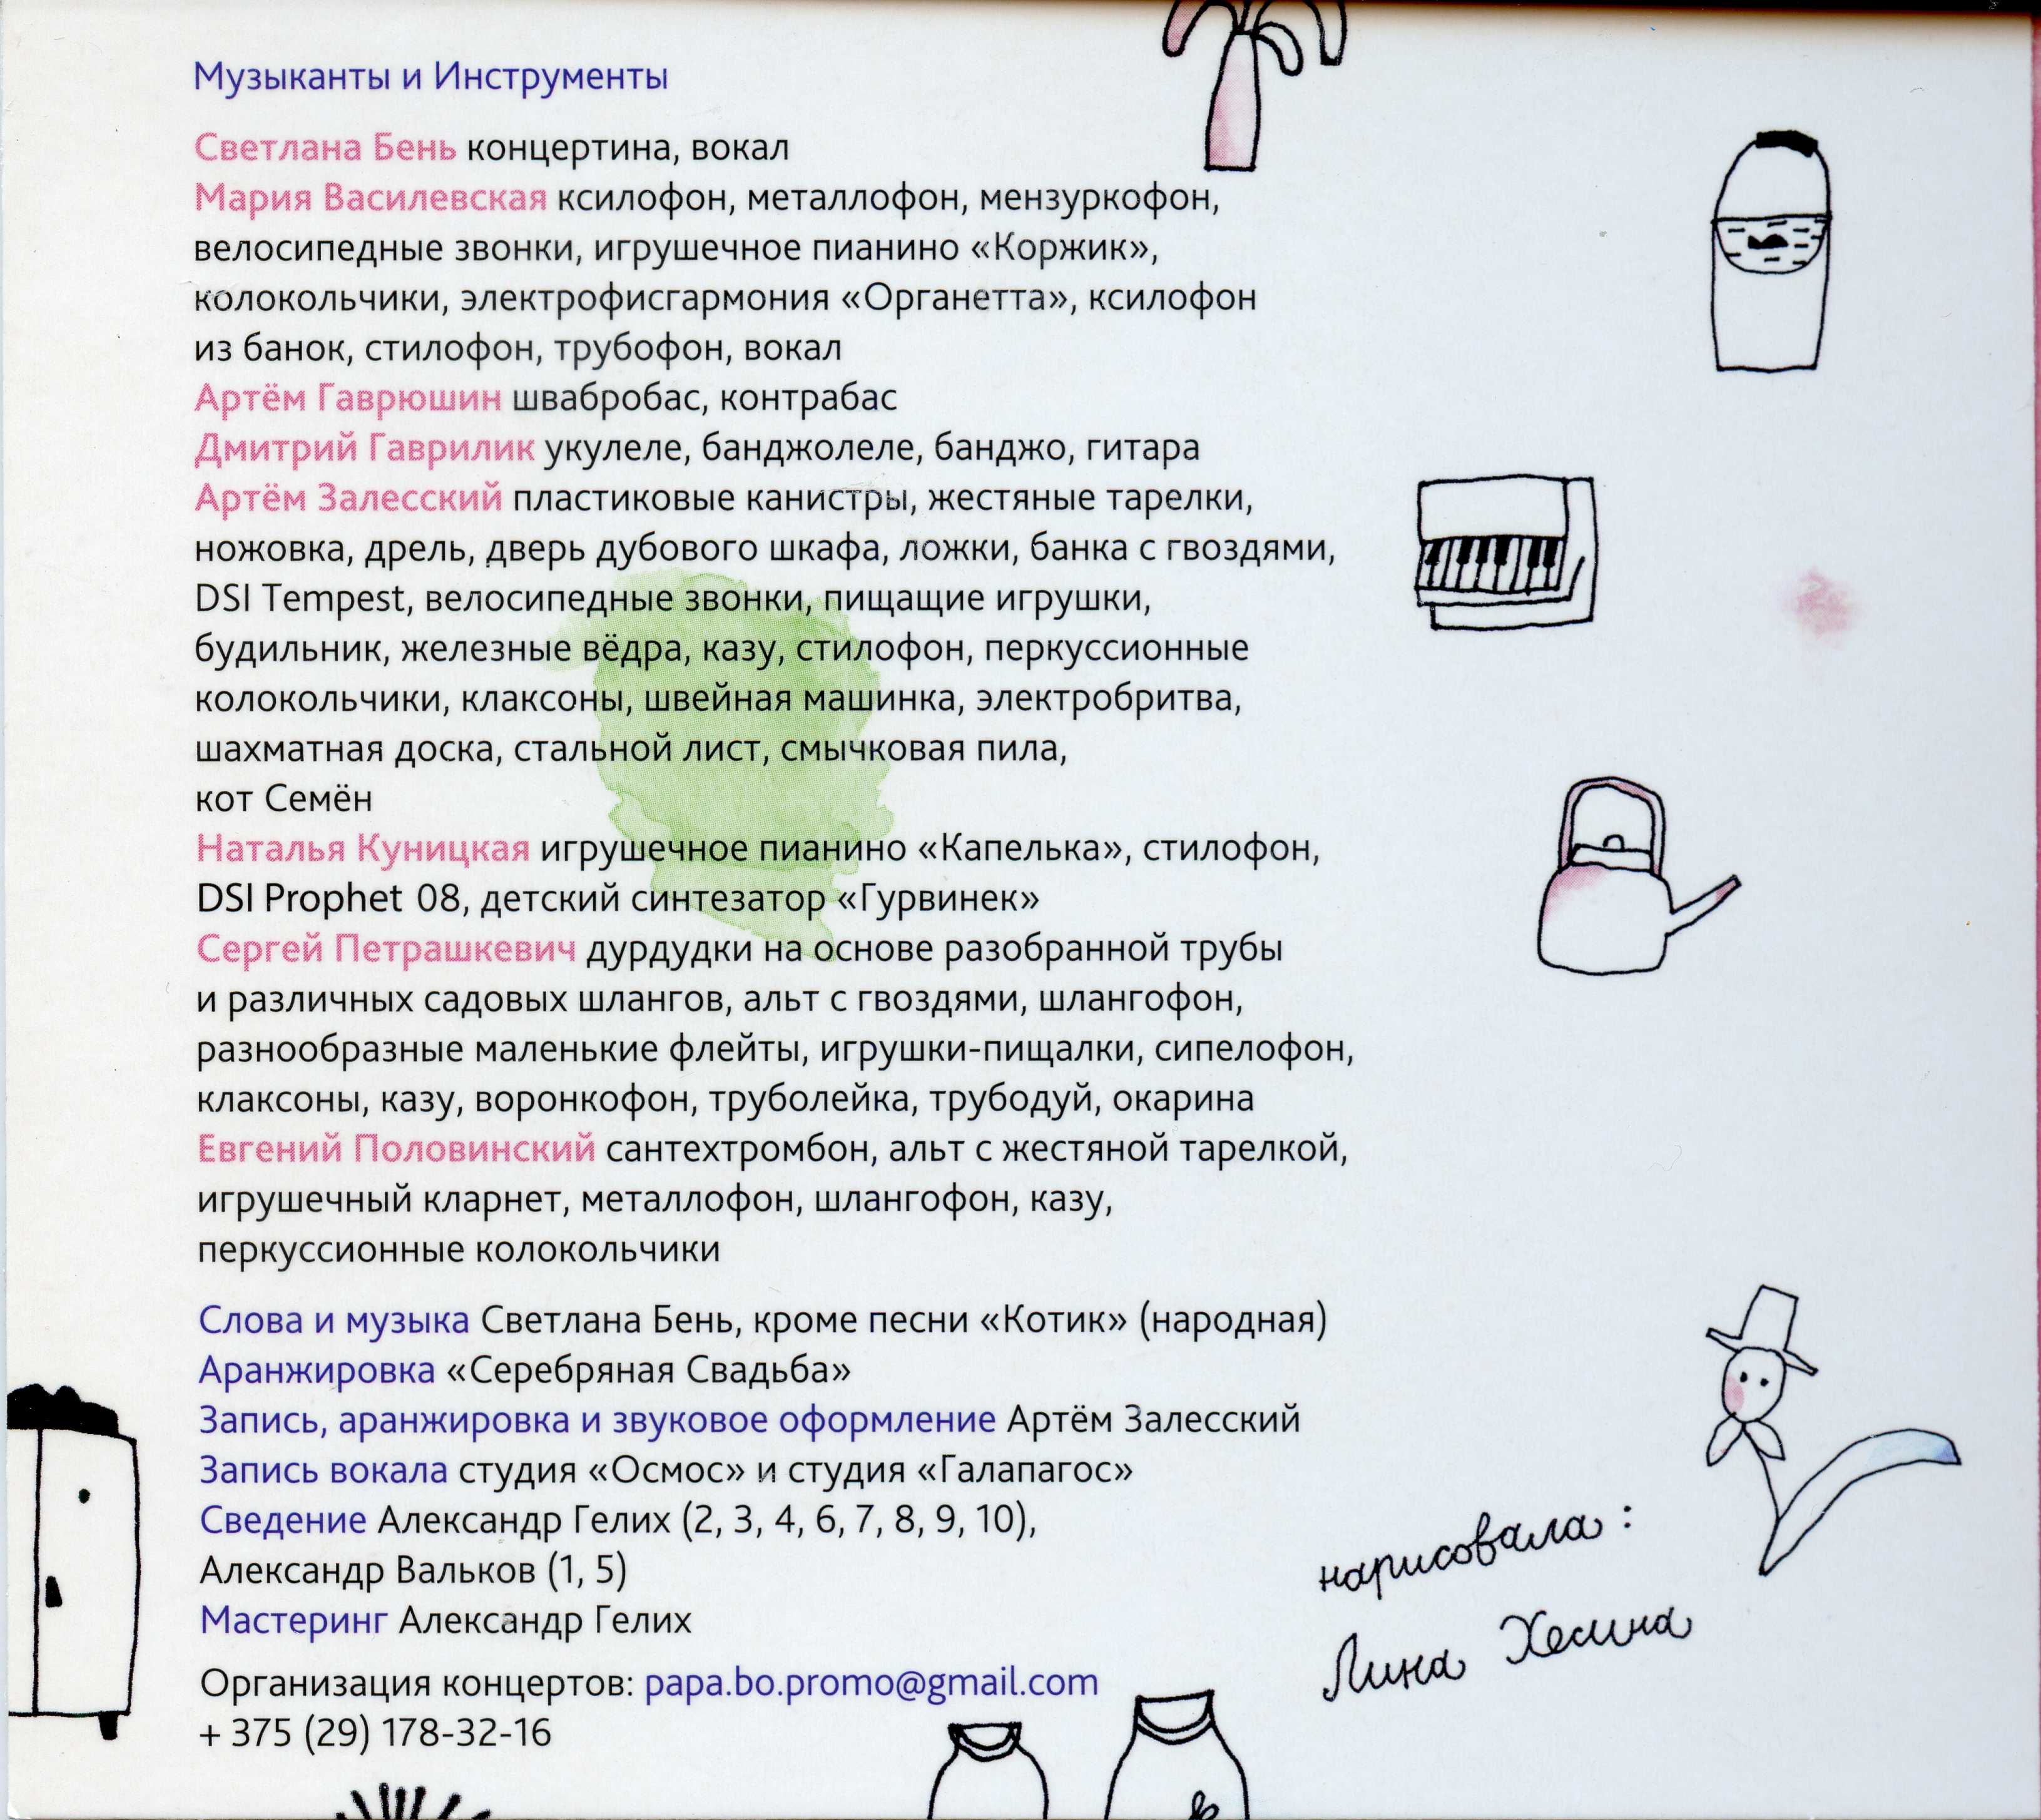 Музыканты и Инструменты
Светлана Бень концертина, вокал
Мария Василевская ксилофон, металлофон, мензуркофон,
велосипедные звонки, игрушечное пианино «Коржик»,
колокольчики, электрофисгармония «Органетта», ксилофон
из банок, стилофон, трубофон, вокал
Артём Гаврюшин швабробас, контрабас
Дмитрий Гаврилик укулеле, банджолеле, банджо, гитара
Артём Залесский пластиковые канистры, жестяные тарелки,
ножовка, дрель, дверь дубового шкафа, ложки, банка с гвоздями,
DSI Tempest, велосипедные звонки, пищащие игрушки,
будильник, железные вёдра, казу, стилофон, перкуссионные
колокольчики, клаксоны, швейная машинка, электробритва,
шахматная доска, стальной лист, смычковая пила,
кот Семён
Наталья Куницкая игрушечное пианино «Капелька», стилофон,
DSI Prophet 08, детский синтезатор «Гурвинек»
Сергей Петрашкевич дурдудки на основе разобранной трубы
и различных садовых шлангов, альт с гвоздями, шлангофон,
разнообразные маленькие флейты, игрушки-пищалки, сипелофон,
клаксоны, казу, воронкофон, труболейка, трубодуй, окарина
Евгений Половинский сантехтромбон, альт с жестяной тарелкой,
игрушечный кларнет, металлофон, шлангофон, казу,
перкуссионные колокольчики
Слова и музыка Светлана Бень, кроме песни «Котик» (народная)
Аранжировка «Серебряная Свадьба»
Запись, аранжировка и звуковое оформление Артём Залесский
Запись вокала студия «Осмос» и студия «Галапагос»
Сведение Александр Гелих (2, 3, 4, 6, 7, 8, 9, 10),
Александр Вальков (1, 5)
Мастеринг Александр Гелих
Организация концертов: papa.bo.promo@gmail.com
+ 375 (29) 178-32-16
нарисовала:
Лина Хесина